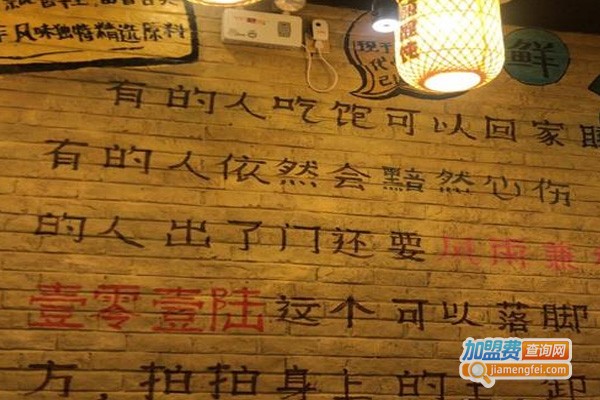 风味独特精选原料
现
代
已
鲜
有的人吃饱可以回家睡
有的人依然会黯然心伤
的人出了门还要风雨兼
壹零壹陆这个可以落脚
方，拍拍身上的土，卸
加盟费查询网
jiamengfei.com